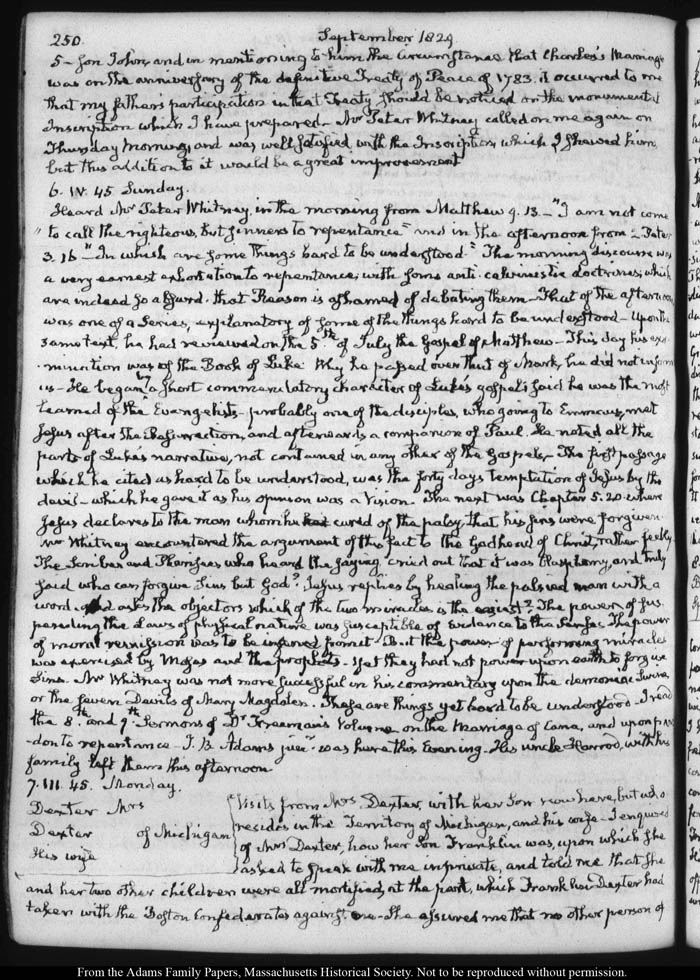 250.
September 1829.
5– son John, and in mentioning to him the Circumstance that Charles's Marriage
was on the anniversary of the definitive Treaty of Peace of 1783. it occurred to me
that my father's participation in that Treaty should be noticed on the monumental
Inscription which I have prepared– Mr Peter Whitney called on me again on
Thursday Morning, and was well satisfied with the Inscription, which I shewed him,
but this addition to it would be a great improvement
6. IV. 45 Sunday.
Heard Mr Peter Whitney, in the morning from Matthew 9. 13.– "I am not come
"to call the righteous, but sinners to repentance" and in the afternoon from 2 Peter
3. 16 "In which are some things hard to be understood." The morning discourse was
a very earnest exhortation to repentance; with some anti-calvinistic doctrines, which
are indeed so absurd. that Reason is ashamed of debating them– That of the afternoon
was one of a Series, explanatory of some of the things hard to be understood– Upon the
same text, he had reviewed on the 5th of July the Gospel of Matthew– This day his exa-
-mination was of the Book of Luke Why he passed over that of Mark, he did not inform
us– He began a short commendatory character of Luke's gospel; said he was the most
learned of the Evangelists– probably one of the disciples, who going to Emmaus, met
Jesus after the Resurrection, and afterwards a companion of Paul. He noted all the
parts of Luke's narrative, not contained in any other of the Gospels,– The first passage
which he cited as hard to be understood, was the forty days temptation of Jesus by the
devil– which he gave it as his opinion was a Vision. The next was Chapter 5. 20. where
Jesus declares to the man whom he had cured of the palsy, that his sins were forgiven
Mr Whitney encountered the argument of the fact to the Godhead of Christ, rather feebly
The Scribes and Pharisees who heard the saying cried out that it was blasphemy, and truly
said who can forgive Sins but God? Jesus replies by healing the palsied man with a
word. and asks the objectors which of the two miracles is the easiest? The power of sus-
pending the Laws of physical nature was susceptible of evidence to the Sense. The power
of moral remission was to be inferred from it– But the power of performing miracles
was exercised by Moses and the prophets– Yet they had not power upon earth to forgive
Sins. Mr Whitney was not more successful in his commentary upon the demoniac Swine,
or the seven Devils of Mary Magdalen. These are things yet hard to be understood– I read
the 8th and 9th Sermons of Dr Freeman's Volume, on the Marriage of Cana, and upon par-
-don to repentance– T. B. Adams junr was here this Evening– His uncle Harrod, with his
family left them this afternoon
7. III. 45. Monday.
Dexter Mrs
Dexter of Michigan
His wife
Visits from Mrs Dexter, with her Son now here, but who
resides in the Territory of Michigan, and his wife– I enquired
of Mrs Dexter, how her Son Franklin was, upon which she
asked to speak with me in private, and told me that she
and her two other children were all mortified, at the part, which Franklin Dexter had
taken with the Boston Confederates against me– She assured me that no other person of
From the Adams Family Papers, Massachusetts Historical Society. Not to be reproduced without permission.